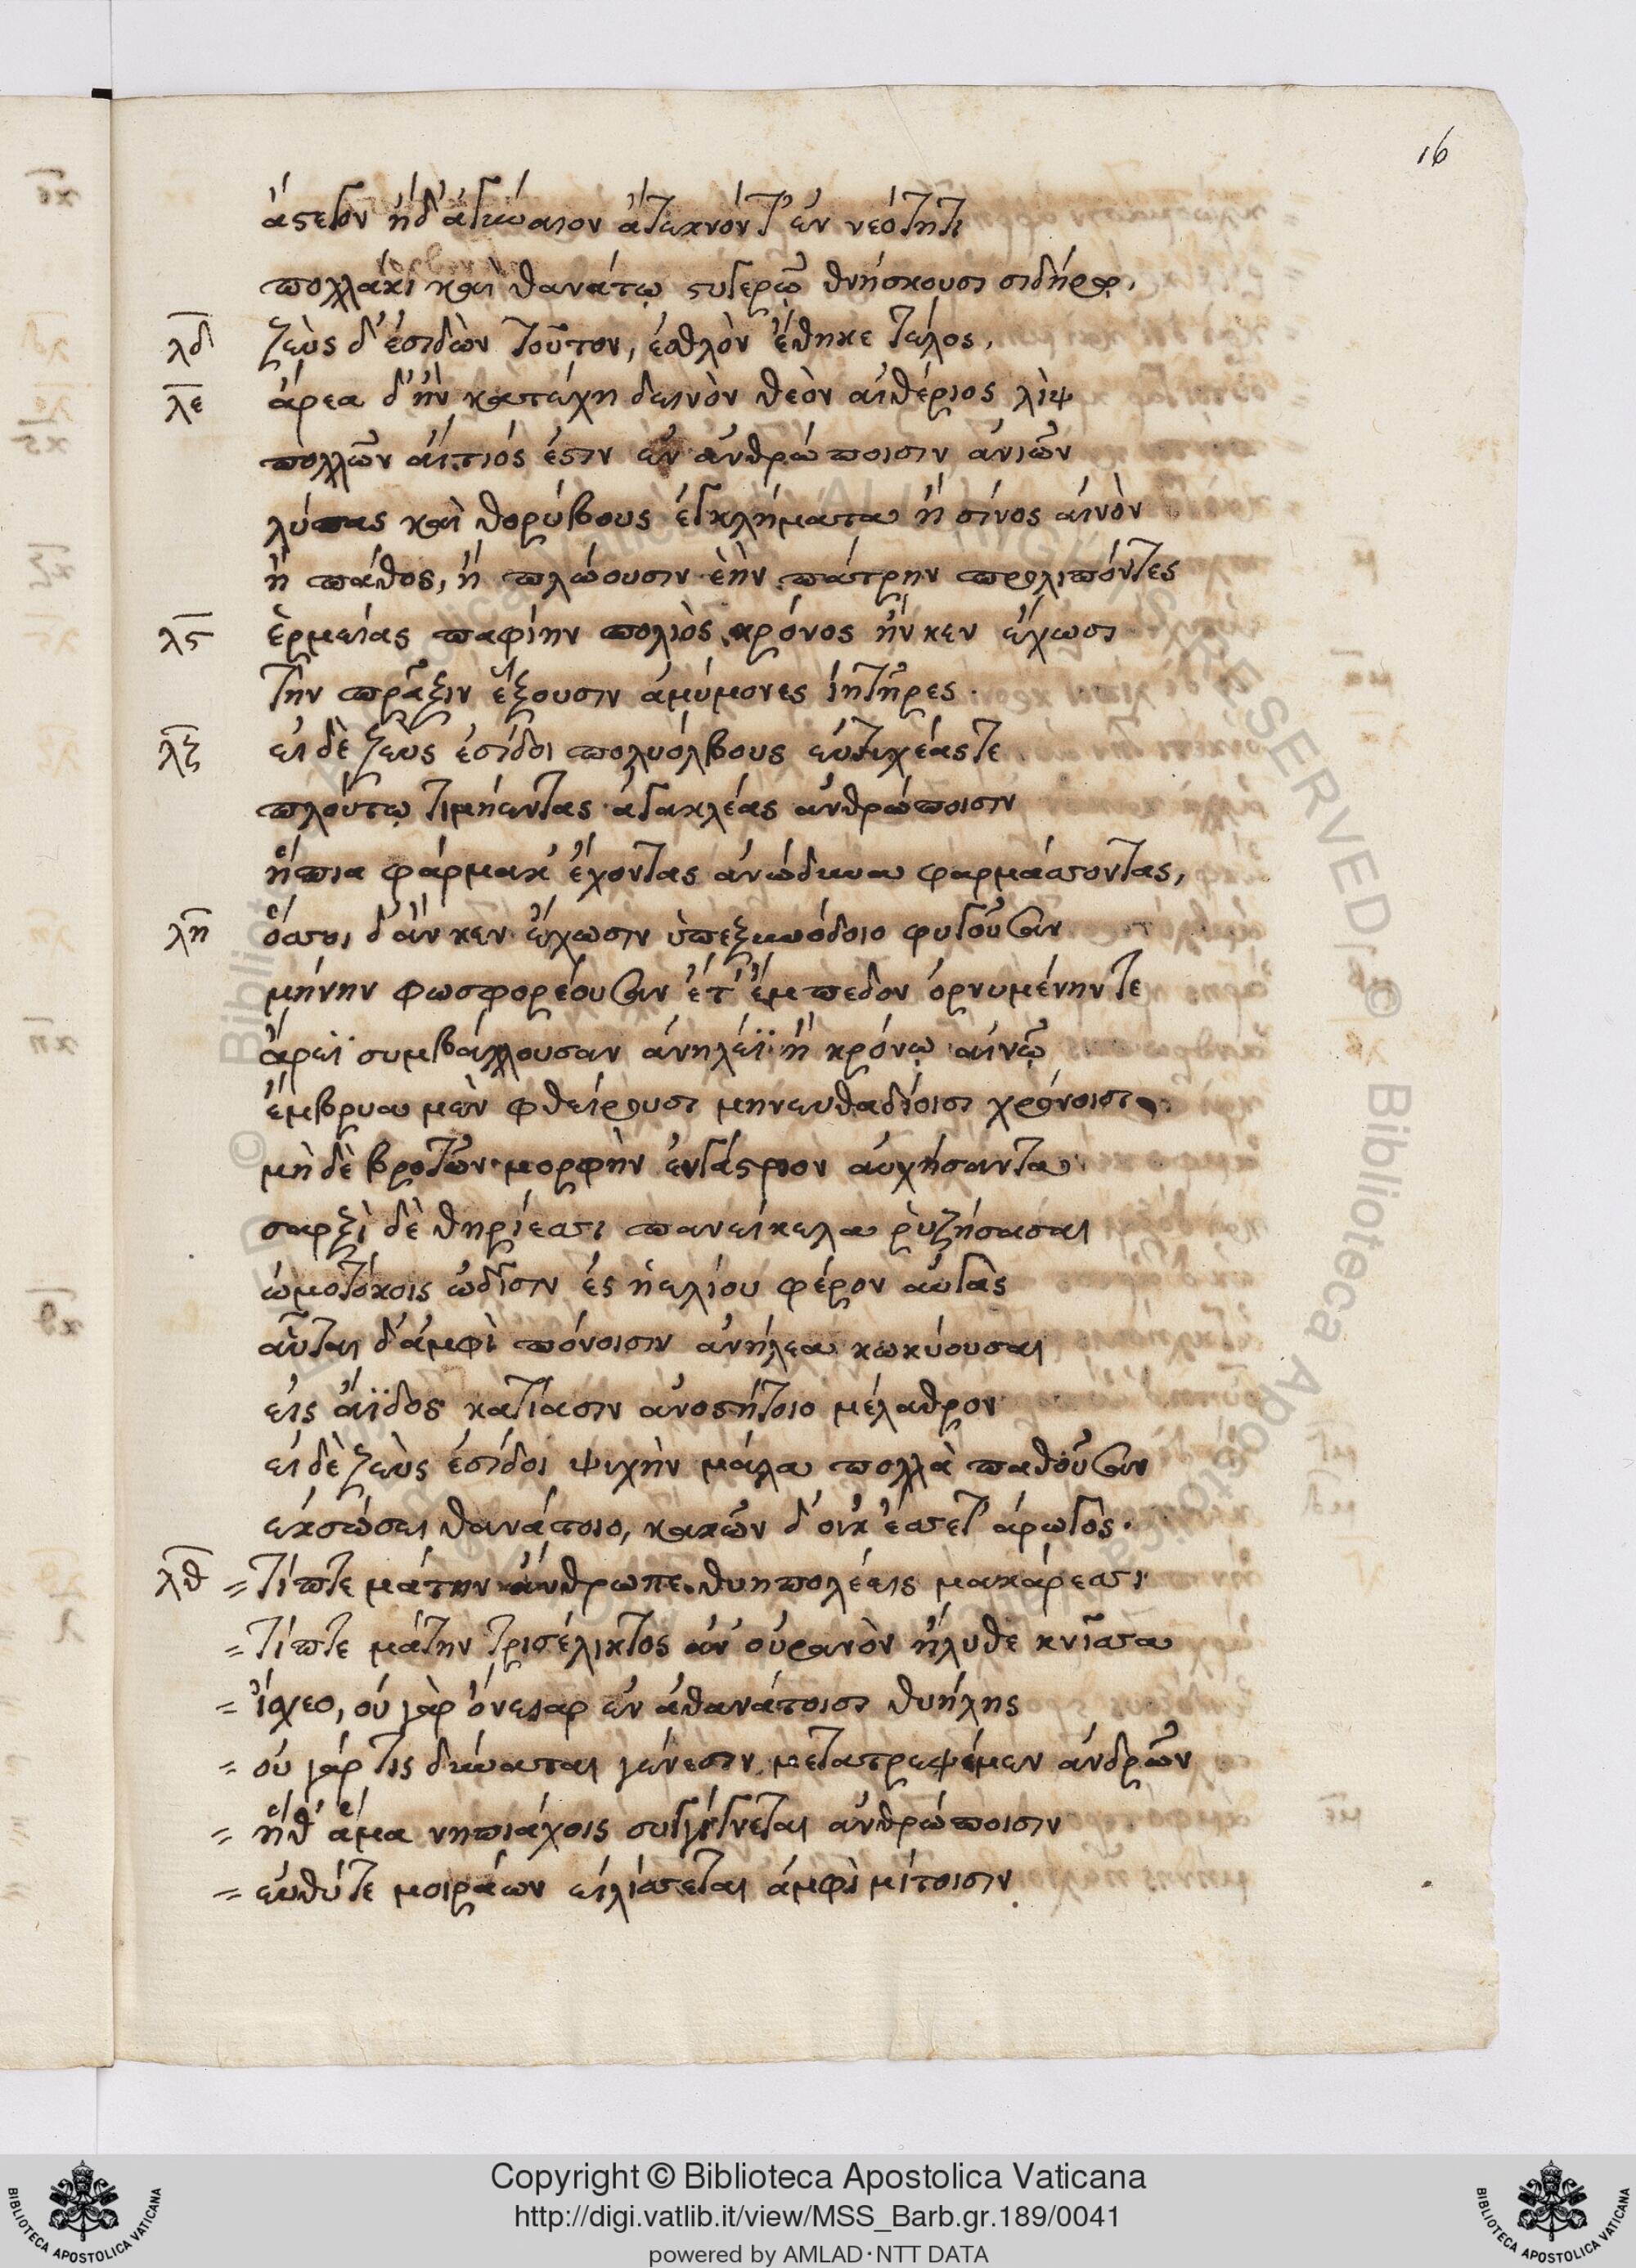 16
ἄστεγον ἠδ' ἀγύναιον ἄτεκνόν τ' ἐν νεότητι
πολλάκι καὶ θανάτῳ στυγερῷ θνήσκουσι σιδήρῳ,
λδ ζεὺς δ' ἐσιδὼν τοῦτον, ἐσθλὸν ἔθηκε τέλος,
λε ἄρεα δ' ἢν κατέχη δεινὸν θεὸν αἰθέριος λὶψ
πολλῶν αἴτιός ἐστιν ἐν ἀνθρώποισιν ἀνιῶν
λύπας καὶ θορύβους ἐγκλήματα ἢ σίνος αἰνὸν
ἢ πάθος, ἢ πλώουσιν ἑὴν πάτρην προλιπόντες
λϛ ἑρμείας παφίην πολιὸς κρόνος ἤν κεν ἔχωσι
τὴν πρᾶξιν ἕξουσιν ἀμύμονες ἰητῆρες.
λζ εἰ δὲ ζεὺς ἐσίδοι πολυόλβους εὐτυχέας τε
πλούτῳ τιμήεντας ἀγακλέας ἀνθρώποισιν
ἤπια φάρμακ' ἔχοντας ἀνώδυνα φαρμάσσοντας,
λη ὅσσοι δ' ἄν κεν ἔχωσιν ὑπεξυπόδοιο φυγοῦσαν
μήνην φωσφορέουσαν ἔτ' ἔμπεδον ὀρνυμένην τε
ἄρεϊ συμβάλλουσαν ἀνηλέϊ ἢ κρόνῳ αἰνῷ
ἔμβρυα μὲν φθείρουσι μηνευθαδίοισι χρόνοισι,
μὴ δὲ βροτῶν μορφὴν ἐνγάστριον αὐχήσαντα
σαρξὶ δὲ θηρίεσσι πανείκελα ῥυζήσασαι
ὠμοτόκοις ὠδῖσιν ἐς ἠελίου φέρον αὐγὰς
αὗται δ' ἀμφὶ πόνοισιν ἀνήλεα κωκύουσαι
εἰς ἄϊδος κατίασιν ἀνοστήτοιο μέλαθρον
εἰ δὲ ζεὺς ἐσίδοι ψυχὴν μάλα πολλὰ παθοῦσαν
ἐκσώσει θανάτοιο, κακῶν δ' οὐκ ἔσσετ' ἀρωγός.
λθ = τίπτε μάτην ἄνθρωπε θυηπολέεις μακάρεσσι
= τίπτε μάτην τρισέλικτος ἀν' οὐρανὸν ἤλυθε κνῖσσα
= ἴσχεο, οὐ γὰρ ὄνειαρ ἐν ἀθανάτοισι θυήλης
= οὐ γάρ τις δύναται γένεσιν μετατρεψέμεν ἀνδρῶν
= ἥθ' ἅμα νηπιάχοις συγγίγνεται ἀνθρώποισιν
= εὐθύτε μοιράων εἱλίσσεται ἀμφὶ μίτοισιν.
Copyright © Biblioteca Apostolica Vaticana
http://digi.vatlib.it/view/MSS_Barb.gr.189/0041
powered by AMLAD·NTT DATA
BIBLIOTECA APOSTOLICA VATICANA
BIBLIOTECA APOSTOLICA VATICANA